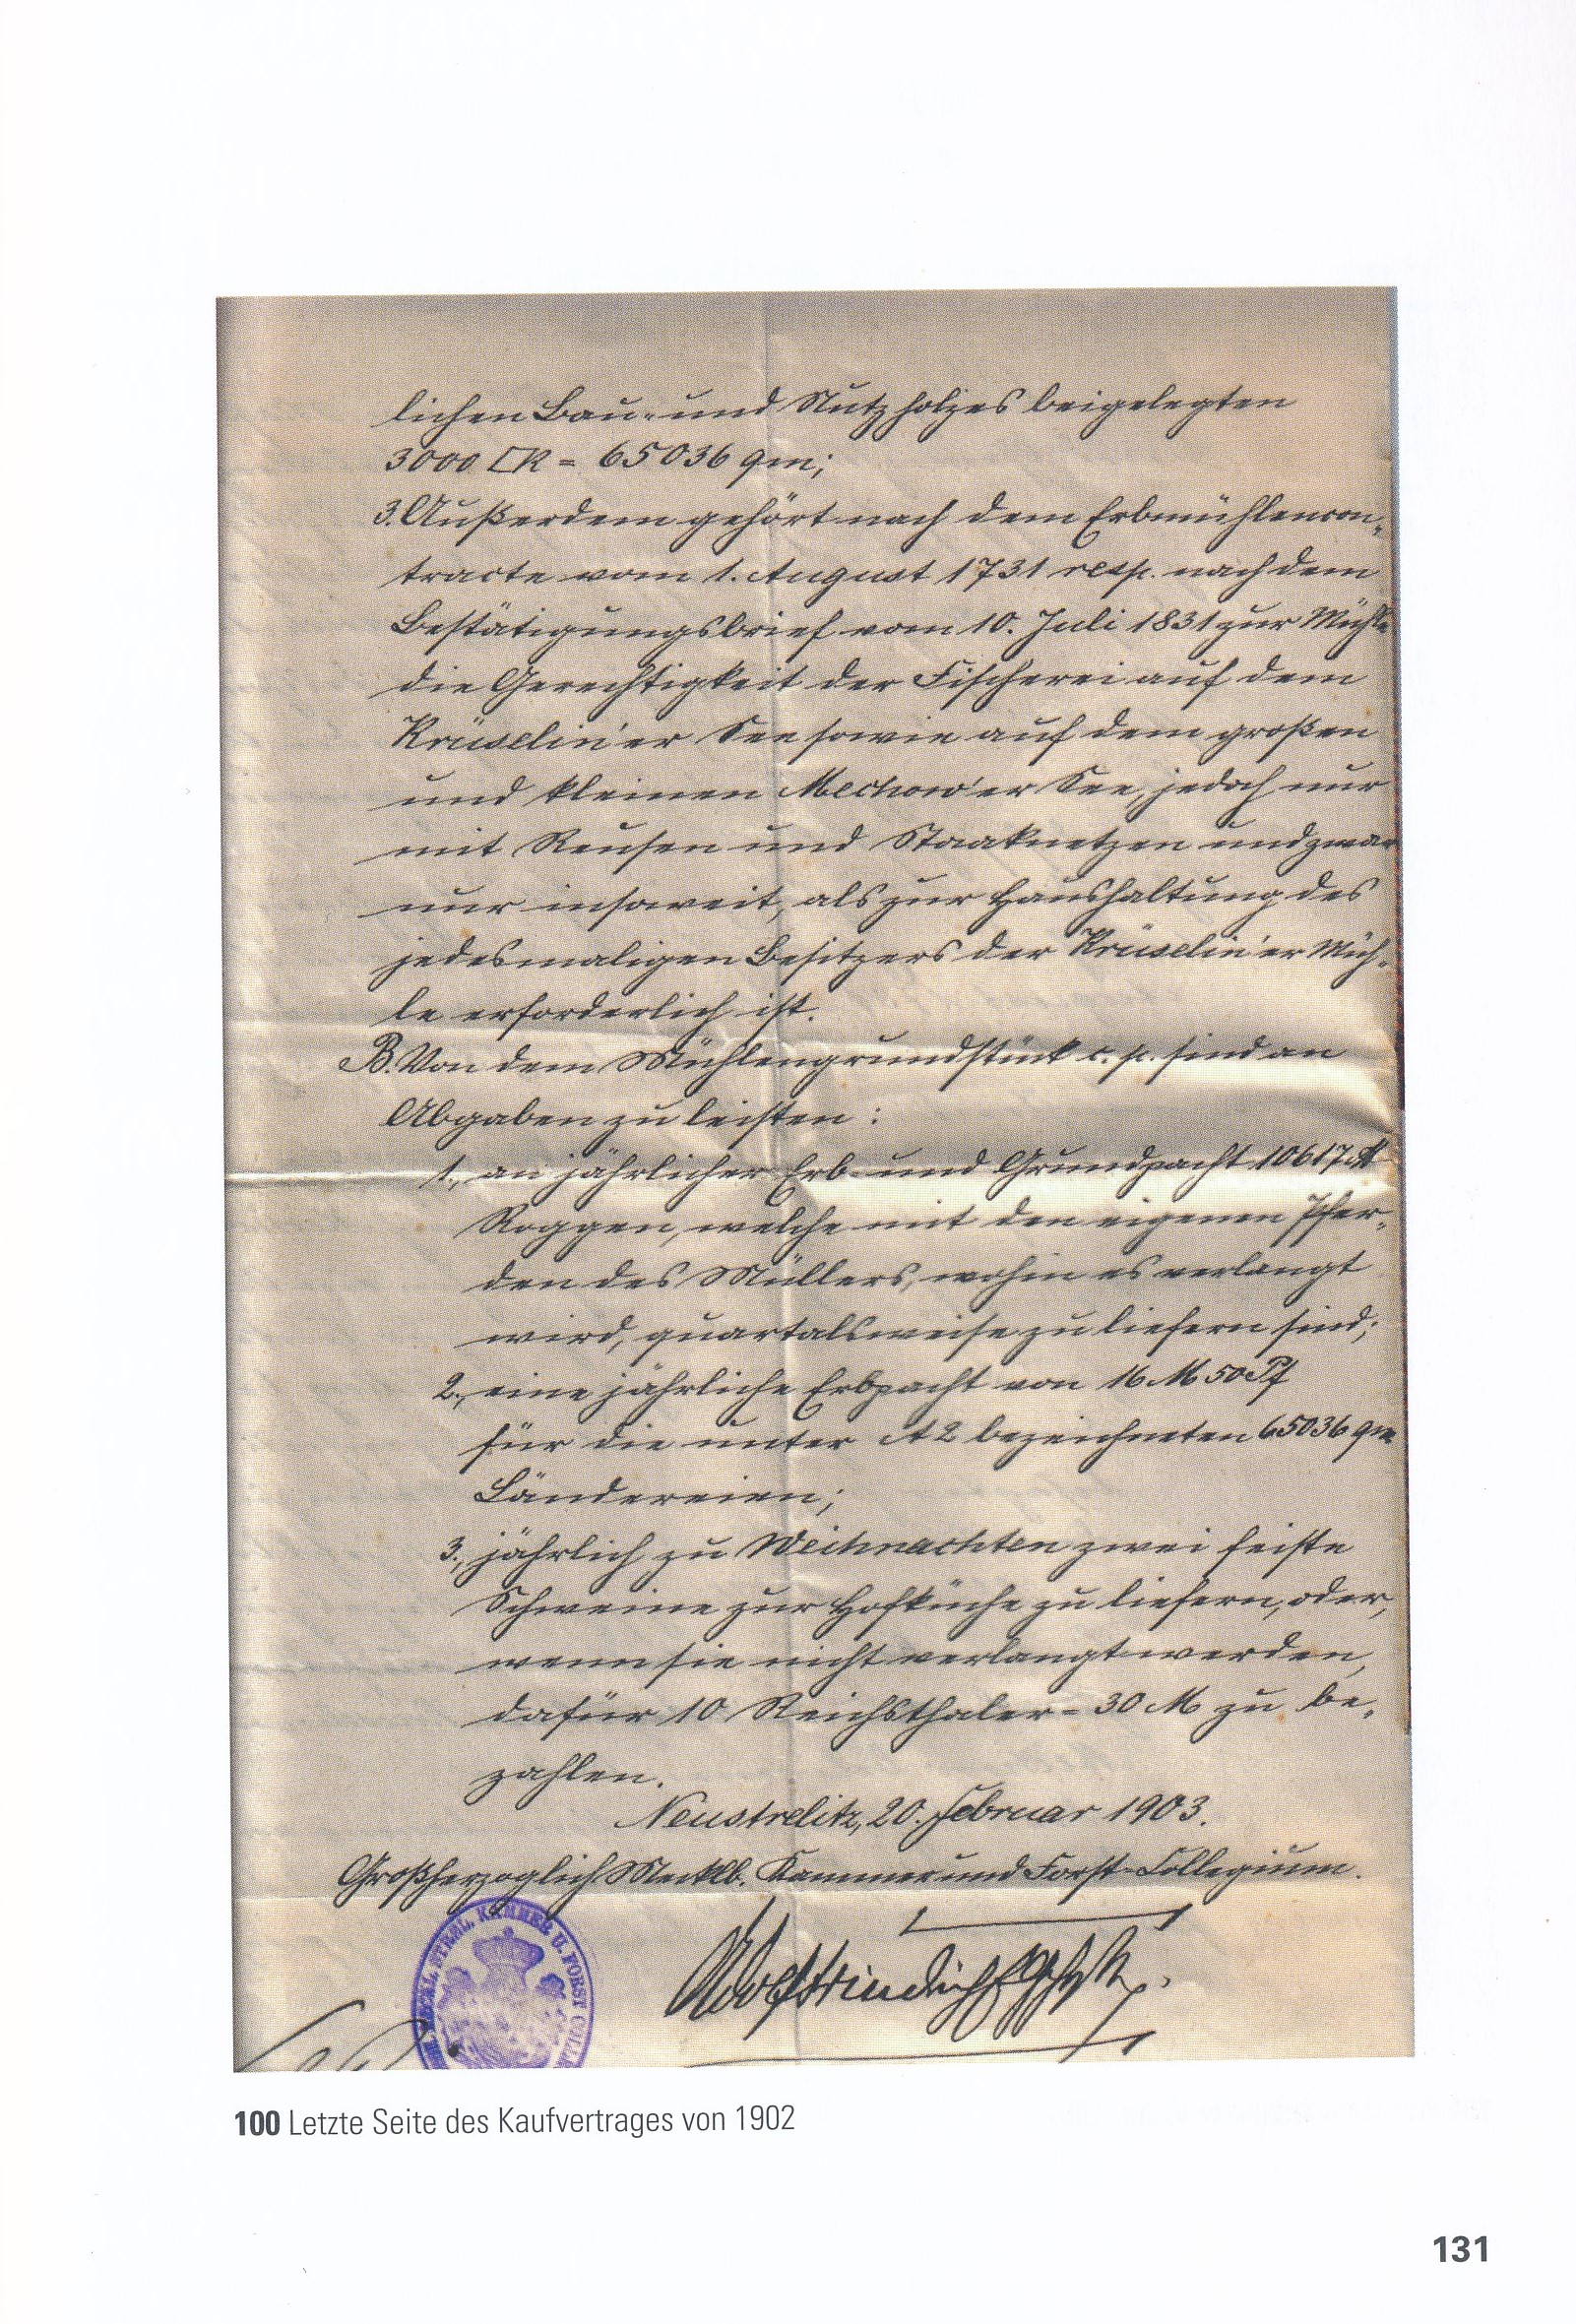 lichen Bau- und Nutzholzes beigelegten
3000 □R = 65036 qm;
3. Außerdem gehört nach dem Erbmühlencon-
tracte vom 1. August 1731 resp. nach dem
Bestätigungsbrief vom 10. Juli 1831 zur Mühle
die Gerechtigkeit der Fischerei auf dem
Krüselin'er See sowie auf dem großen
und kleinen Mechow'er See, jedoch nur
mit Reusen und Staaknetzen und zwar
nur insoweit, als zur Haushaltung des
jedesmaligen Besitzers der Krüselin'er Müh-
le erforderlich ist.
B. Von dem Mühlengrundstück c. p. sind an
Abgaben zu leisten:
1., an jährlicher Erb- und Grundpacht 10617 ℔
Roggen, welche mit den eigenen Pfer-
den des Müllers, wohin es verlangt
wird, quartalsweise zu liefern sind;
2., eine jährliche Erbpacht von 16 M 50 Pf
für die unter A 2 bezeichneten 65036 qm
Ländereien;
3., jährlich zu Weihnachten zwei feiste
Schweine zur Hofküche zu liefern, oder,
wenn sie nicht verlangt werden,
dafür 10 Reichsthaler = 30 M zu be-
zahlen.
Neustrelitz, 20. Februar 1903.
Großherzoglich Mecklb. Kammer und Forst-Collegium.
MECKL. STREL. KAMMER U. FORST COLL
100 Letzte Seite des Kaufvertrages von 1902
131